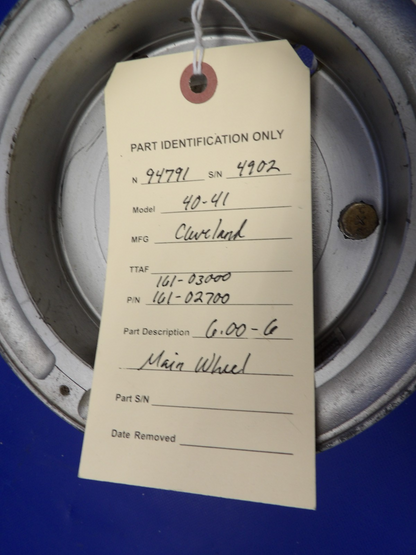 PART IDENTIFICATION ONLY
N 94791 S/N 4902
Model 40-41
MFG Cleveland
TTAF
161-03000
P/N 161-02700
Part Description 6.00-6
Main Wheel
Part S/N
Date Removed